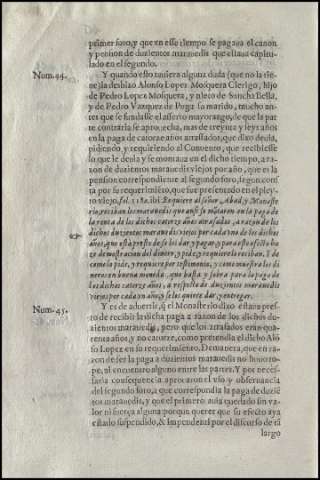 primer foro, y que en esse tiempo se pagava el canon
y pension de duzientos maravedis que estava capitu-
lado en el segundo.
Num. 44. Y quando esto tuviera alguna duda (que no la tie-
ne) la deshizo Alonso Lopez Mosquera Clerigo, hijo
de Pedro Lopez Mosquera, y nieto de Sancha Bella,
y de Pedro Vazquez de Puga su marido, mucho an-
tes que se fundasse el assetto mayorazgo, de que la par-
te contraria se aprovecha, mas de treynta y seys años
en la paga de catorze años atrassados, que dixo devia,
pidiendo y requiriendo al Convento, que recibiesse
lo que le devia y se montava en el dicho tiempo, a ra-
zon de duzientos maravedis viejos por año, que es la
pension correspondiente al segundo foro, segun cons-
ta por su requerimiento, que fue presentado en el pley-
to viejo, fol. ibi. Requiere al señor Abad, y Monaste-
rio, reciban los maravedis que ansi se montaren en la paga de
la renta de los dichos catorze años atrassados, a razon de los
dichos duzientos maravedis viejos por cada uno de los dichos
años, que està presto de se los dar y pagar, y para este efecto ha-
ze demonstracion del dinero, y pide, y requiere lo reciban. Y de
como lo pide, y requiere por testimonio, y como muestra los di-
neros en buena moneda que basta y sobra para la paga de
los dichos catorze años, a respecto de duzientos maravedis
viejos por cada un año, y se los quiere dar, y entregar.
Num. 45. Y es de advertir, q̃ el Monasterio dixo estava pres-
to de recibir la dicha paga a razon de los dichos du-
zientos maravedis, pero que los atrasados eran qua-
renta años, y no catorze, como pretendia el dicho Alon-
so Lopez en su requerimiento. De manera, que en ra-
zon de ser la paga a duzientos maravedis no huvo ro-
pe, ni encuentro alguno entre las partes. Y por neces-
saria consequencia aprovaron el uso y observancia
del segundo foro, a que correspondia la paga de duzie-
tos maravedis, y que el primero avia quedado sin va-
lor ni fuerça alguna porque querer que su efecto aya
estado suspendido, & impendenti por el discurso de ta
largo